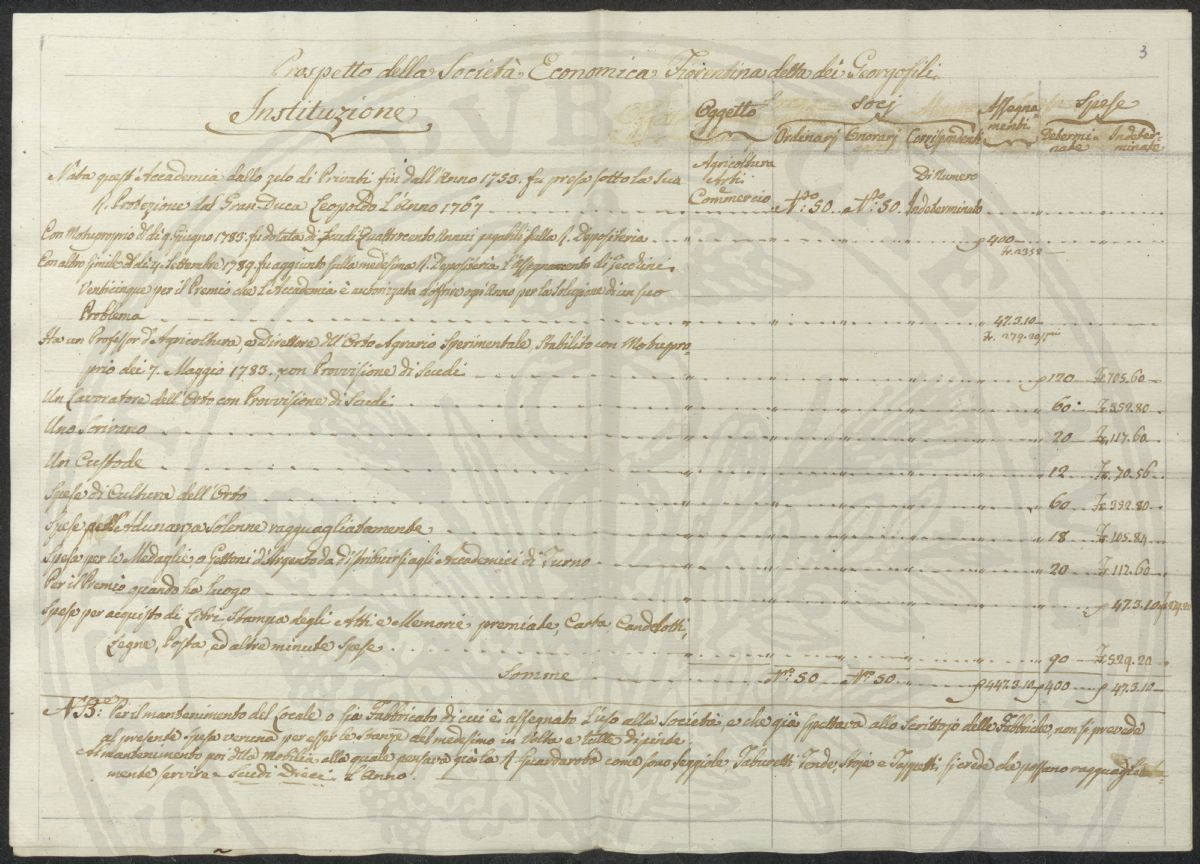 3
Prospetto della Società Economica Fiorentina detta dei Georgofili.
Instituzione Oggetto Socj Assegna- Spese
Ordinarj Onorarj Corrispondenti menti. Determi- Indeter-
nate minate
Agricoltura
Nata quest'Accademia dallo zelo di Privati fin dall'Anno 1753. fu presa sotto la sua Arti Di Numero
R. Protezione dal Gran Duca Leopoldo L'Anno 1767 Commercio N.o 50 N.o 50 Indeterminato
Con Motuproprio d di 9. Giugno 1783. fu dotata di Scudi Quattrocento Annui pagabili sulla R. Depositeria 400
fr. 2352
Con altro simile d di 4. Settembre 1789. fu aggiunto sulla medesima R. Depositeria l'Assegnamento di Zecchini
Venticinque per il Premio che L'Accademia è autorizzata d'offrire ogni Anno per la Soluzione di un suo
Problema 47.3.10
fr. 279.
Ha un Professor d'Agricoltura, e Direttore dell'Orto Agrario Sperimentale, Stabilito con Motupro-
prio dei 7. Maggio 1783. con Provvisione di Scudi 120 fr. 705.60
Un Lavoratore dell'Orto con Provvisione di Scudi 60 fr. 352.80
Uno Scrivano 20 fr. 117.60
Un Custode 12 fr. 70.56
Spese di Cultura dell'Orto 60 fr. 352.80
Spese Adunanza Solenne ragguagliatamente 18 fr. 105.84
Spesa per le Medaglie, o Gettoni d'Argento da distribuirsi agli Accademici di Turno 20 fr. 112.60
Per il Premio quando ha luogo 47.3.10
Spese per acquisto di Libri, Stampa degli Atti e Memorie premiate, Carta Candelotti,
Legne, Posta, ed altre minute Spese 90 fr. 529.20
Somme N.o 50 N.o 50 447.3.10 400 47.3.10
NB.e Per il mantenimento del Locale o sia Fabbricato di cui è assegnato l'uso alla Società e che già spettava allo Scrittojo delle Fabbriche, non si prevede
al presente spesa veruna per esser le Stanze del medesimo in Volta e tutte dipinte.
Al mantenimento poi della mobilia alla quale pensava già la R. Guardaroba come sono Seggiole Taburetti Tende, Stoje e Tappeti, si crede che possano ragguagliata-
mente servire Scudi Dieci l'Anno.